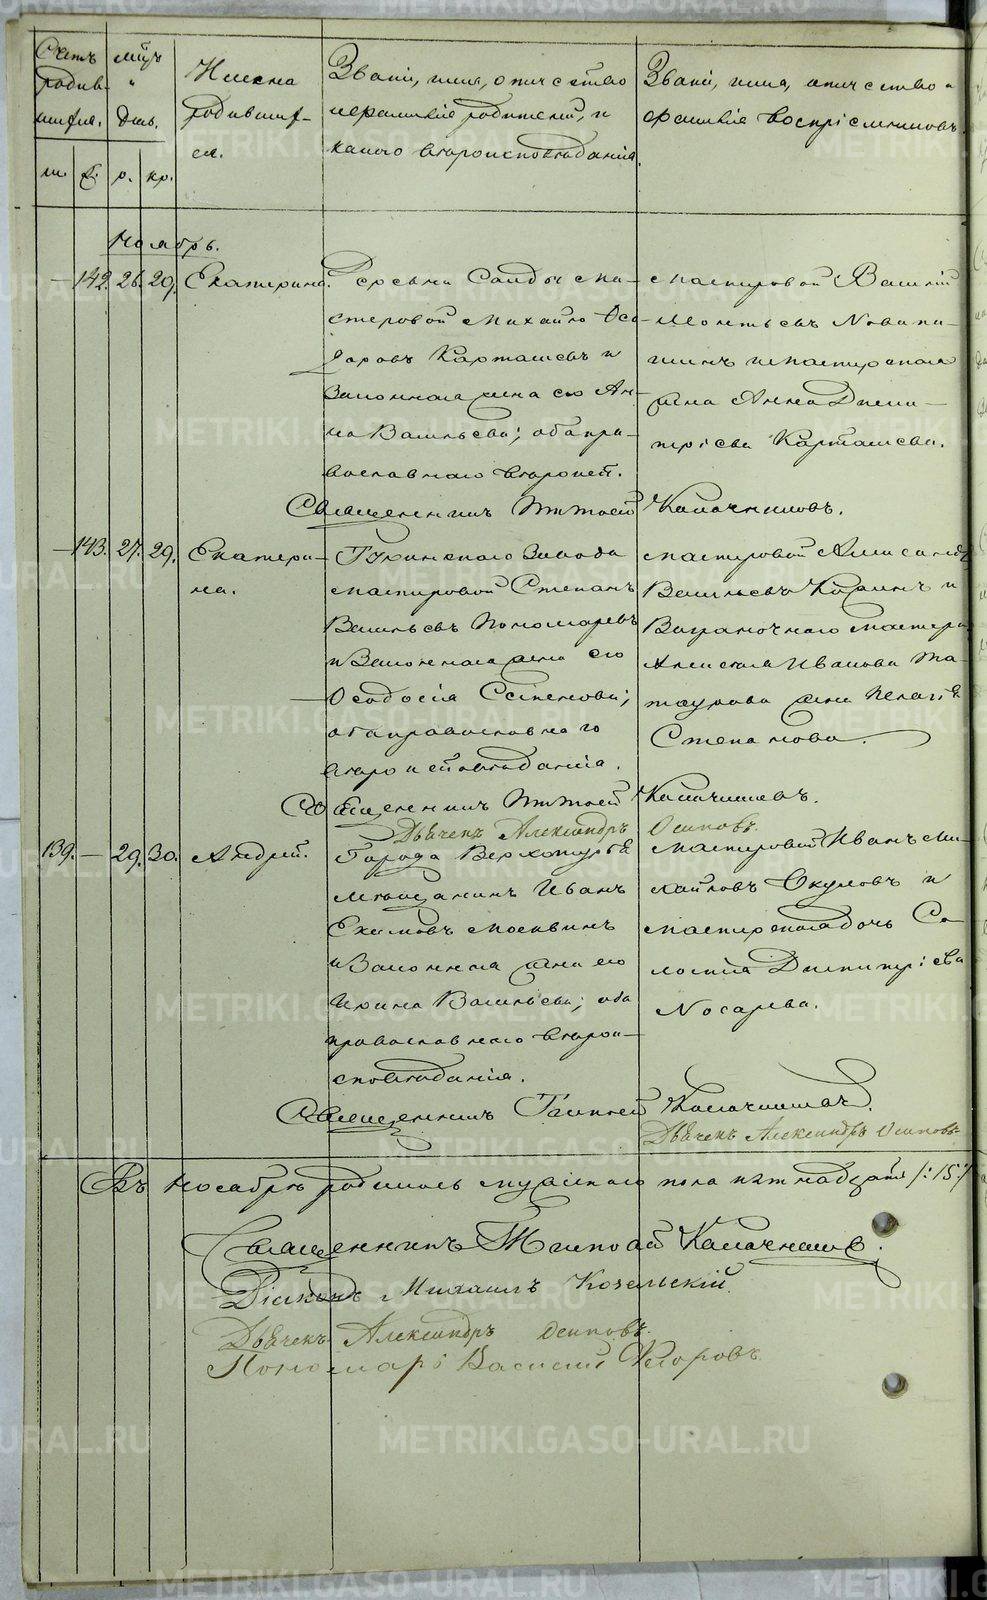 Счетъ
родив-
шихся.
мѣц.
"
день.
Имена
родивших-
ся.
Званіе, имя, отчество
и фамилія родителей, и
какого вѣроисповѣданія.
Званіе, имя, отчество и
фамилія воспріемниковъ.
м. ж. р. кр.
Ноябрь.
— 142. 26. 29. Екатерина.
стеровой Михайло Ѳео-
доровъ Карташевъ и
законная жена его Ан-
на Васильева; оба пра-
вославнаго
мастеровой Василій
жена Анна Дими-
тріева Карташева.
Священникъ Тимофей Калачниковъ.
— 143. 27. 29. Екатери-
на.
завода
мастеровой Степанъ
Васильевъ Пономаревъ
и законная жена его
Ѳеодосія Семенова;
оба православнаго
вѣроисповѣданія.
мастеровой Александръ
Васильевъ и
мастера
Иванова
жена Пелагѣя
Степанова.
Священникъ Тимофей Калачниковъ.
Дьячекъ Александръ Осиповъ.
139. — 29. 30. Андрей.
Города Верхотурья
мѣщанинъ Иванъ
Екимовъ Москвинъ
и законная жена его
Ирина Васильева; оба
православнаго вѣрои-
сповѣданія.
мастеровой Иванъ Ми-
хайловъ Окуловъ и
мастерская дочь
Димитріева
Носарева.
Священникъ Тимофей Калачниковъ.
Дьячекъ Александръ Осиповъ
Въ Ноябрѣ родилось мужскаго пола пятнадцать /:15:/
Священникъ Тимофей Калачниковъ.
Діаконъ Михаилъ Козельскій.
Дьячекъ Александръ Осиповъ.
Пономарь Василій Ѳедоровъ
METRIKI.GASO-URAL.RU